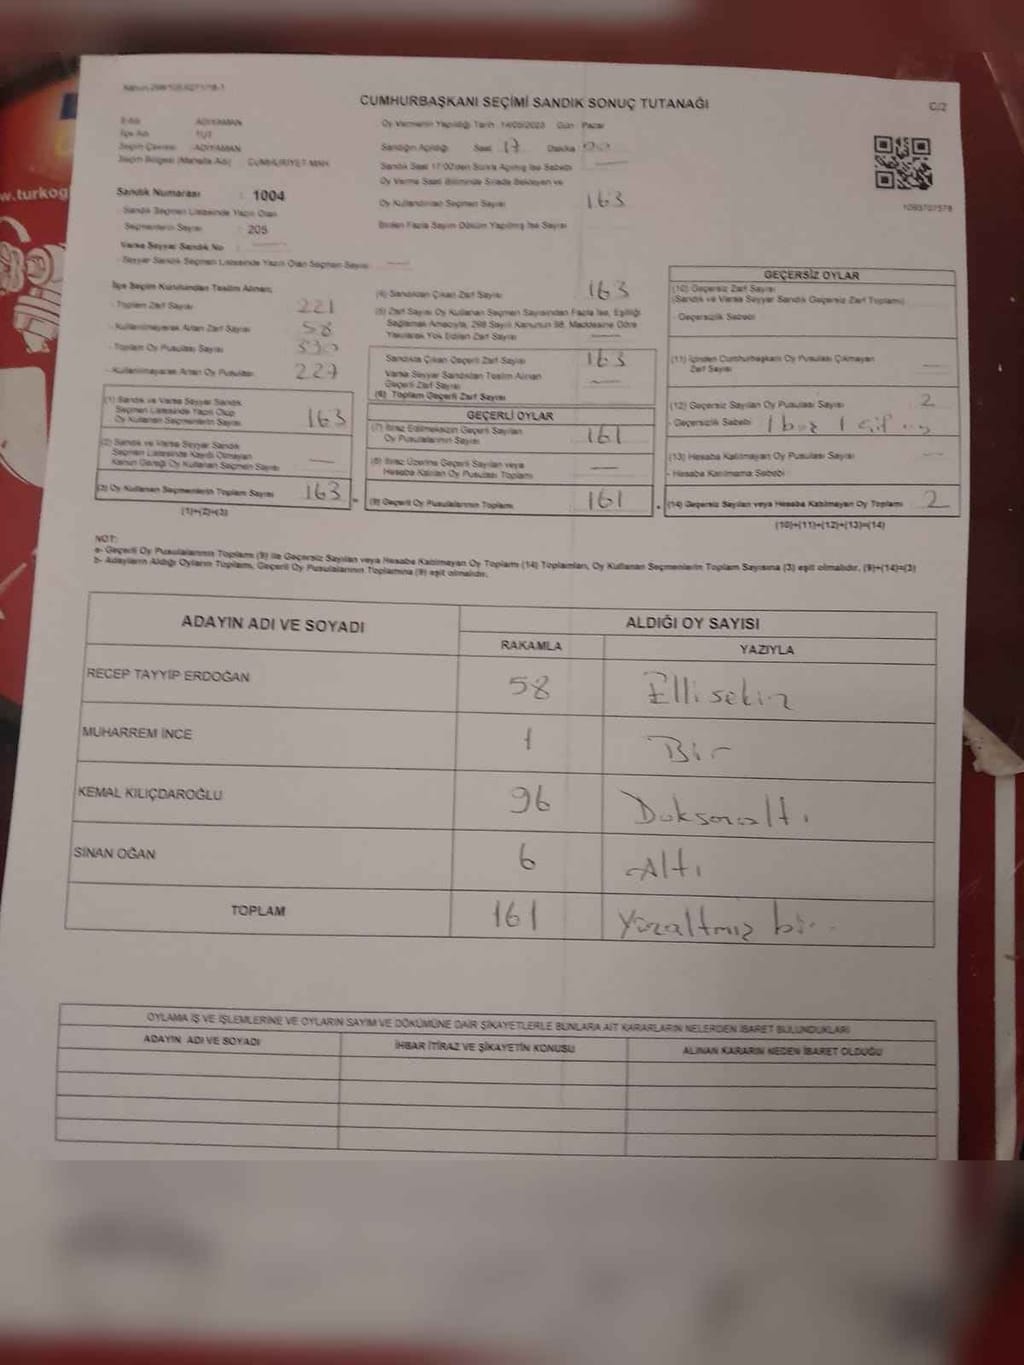 CUMHURBAŞKANI SEÇİMİ SANDIK SONUÇ TUTANAĞI
C/2
İli Adı ADIYAMAN
İlçe Adı TUT
Seçim Çevresi ADIYAMAN
Seçim Bölgesi (Mahalle Adı) CUMHURİYET MAH.
Sandık Numarası : 1004
Sandık Seçmen Listesinde Yazılı Olan
Seçmenlerin Sayısı : 205
Varsa Seyyar Sandık No
- Seyyar Sandık Seçmen Listesinde Yazılı Olan Seçmen Sayısı
Oy Vermenin Yapıldığı Tarih : 14/05/2023 Gün : Pazar
Sandığın Açıldığı Saat 17 Dakika 00
Sandık Saat 17:00'den Sonra Açılmış İse Sebebi
Oy Verme Saati Bitiminde Sırada Bekleyen ve
Oy Kullandırılan Seçmen Sayısı 163
Birden Fazla Sayım Döküm Yapılmış İse Sayısı
www.turkog
1093707578
İlçe Seçim Kurulundan Teslim Alınan;
- Toplam Zarf Sayısı 221
- Kullanılmayarak Artan Zarf Sayısı 58
- Toplam Oy Pusulası Sayısı
- Kullanılmayarak Artan Oy Pusulası 227
(1) Sandık ve Varsa Seyyar Sandık
Seçmen Listesinde Yazılı Olup
Oy Kullanan Seçmenlerin Sayısı 163
(2) Sandık ve Varsa Seyyar Sandık
Seçmen Listesinde Kaydı Olmayan
Kanun Gereği Oy Kullanan Seçmen Sayısı
(3) Oy Kullanan Seçmenlerin Toplam Sayısı 163
(1)+(2)=(3)
(4) Sandıktan Çıkan Zarf Sayısı 163
(5) Zarf Sayısı Oy Kullanan Seçmen Sayısından Fazla İse, Eşitliği
Sağlamak Amacıyla, 298 Sayılı Kanunun 98. Maddesine Göre
Yakılarak Yok Edilen Zarf Sayısı
Sandıkta Çıkan Geçerli Zarf Sayısı 163
Varsa Seyyar Sandıktan Teslim Alınan
Geçerli Zarf Sayısı
(6) Toplam Geçerli Zarf Sayısı
GEÇERLİ OYLAR
(7) İtiraz Edilmeksizin Geçerli Sayılan
Oy Pusulalarının Sayısı 161
(8) İtiraz Üzerine Geçerli Sayılan veya
Hesaba Katılan Oy Pusulası Toplamı
(9) Geçerli Oy Pusulalarının Toplamı 161
GEÇERSİZ OYLAR
(10) Geçersiz Zarf Sayısı
(Sandık ve Varsa Seyyar Sandık Geçersiz Zarf Toplamı)
- Geçersizlik Sebebi
(11) İçinden Cumhurbaşkanı Oy Pusulası Çıkmayan
Zarf Sayısı
(12) Geçersiz Sayılan Oy Pusulası Sayısı 2
- Geçersizlik Sebebi 1 boş 1
(13) Hesaba Katılmayan Oy Pusulası Sayısı
- Hesaba Katılmama Sebebi
(14) Geçersiz Sayılan veya Hesaba Katılmayan Oy Toplamı 2
(10)+(11)+(12)+(13)=(14)
NOT:
a- Geçerli Oy Pusulalarının Toplamı (9) ile Geçersiz Sayılan veya Hesaba Katılmayan Oy Toplamı (14) Toplamları, Oy Kullanan Seçmenlerin Toplam Sayısına (3) eşit olmalıdır. (9)+(14)=(3)
b- Adayların Aldığı Oyların Toplamı, Geçerli Oy Pusulalarının Toplamına (9) eşit olmalıdır.
ADAYIN ADI VE SOYADI ALDIĞI OY SAYISI
RAKAMLA YAZIYLA
RECEP TAYYİP ERDOĞAN 58 Ellisekiz
MUHARREM İNCE 1 Bir
KEMAL KILIÇDAROĞLU 96 Doksanaltı
SİNAN OĞAN 6 Altı
TOPLAM 161 Yüzaltmış bir
OYLAMA İŞ VE İŞLEMLERİNE VE OYLARIN SAYIM VE DÖKÜMÜNE DAİR ŞİKAYETLERLE BUNLARA AİT KARARLARIN NELERDEN İBARET BULUNDUKLARI
ADAYIN ADI VE SOYADI İHBAR İTİRAZ VE ŞİKAYETİN KONUSU ALINAN KARARIN NEDEN İBARET OLDUĞU